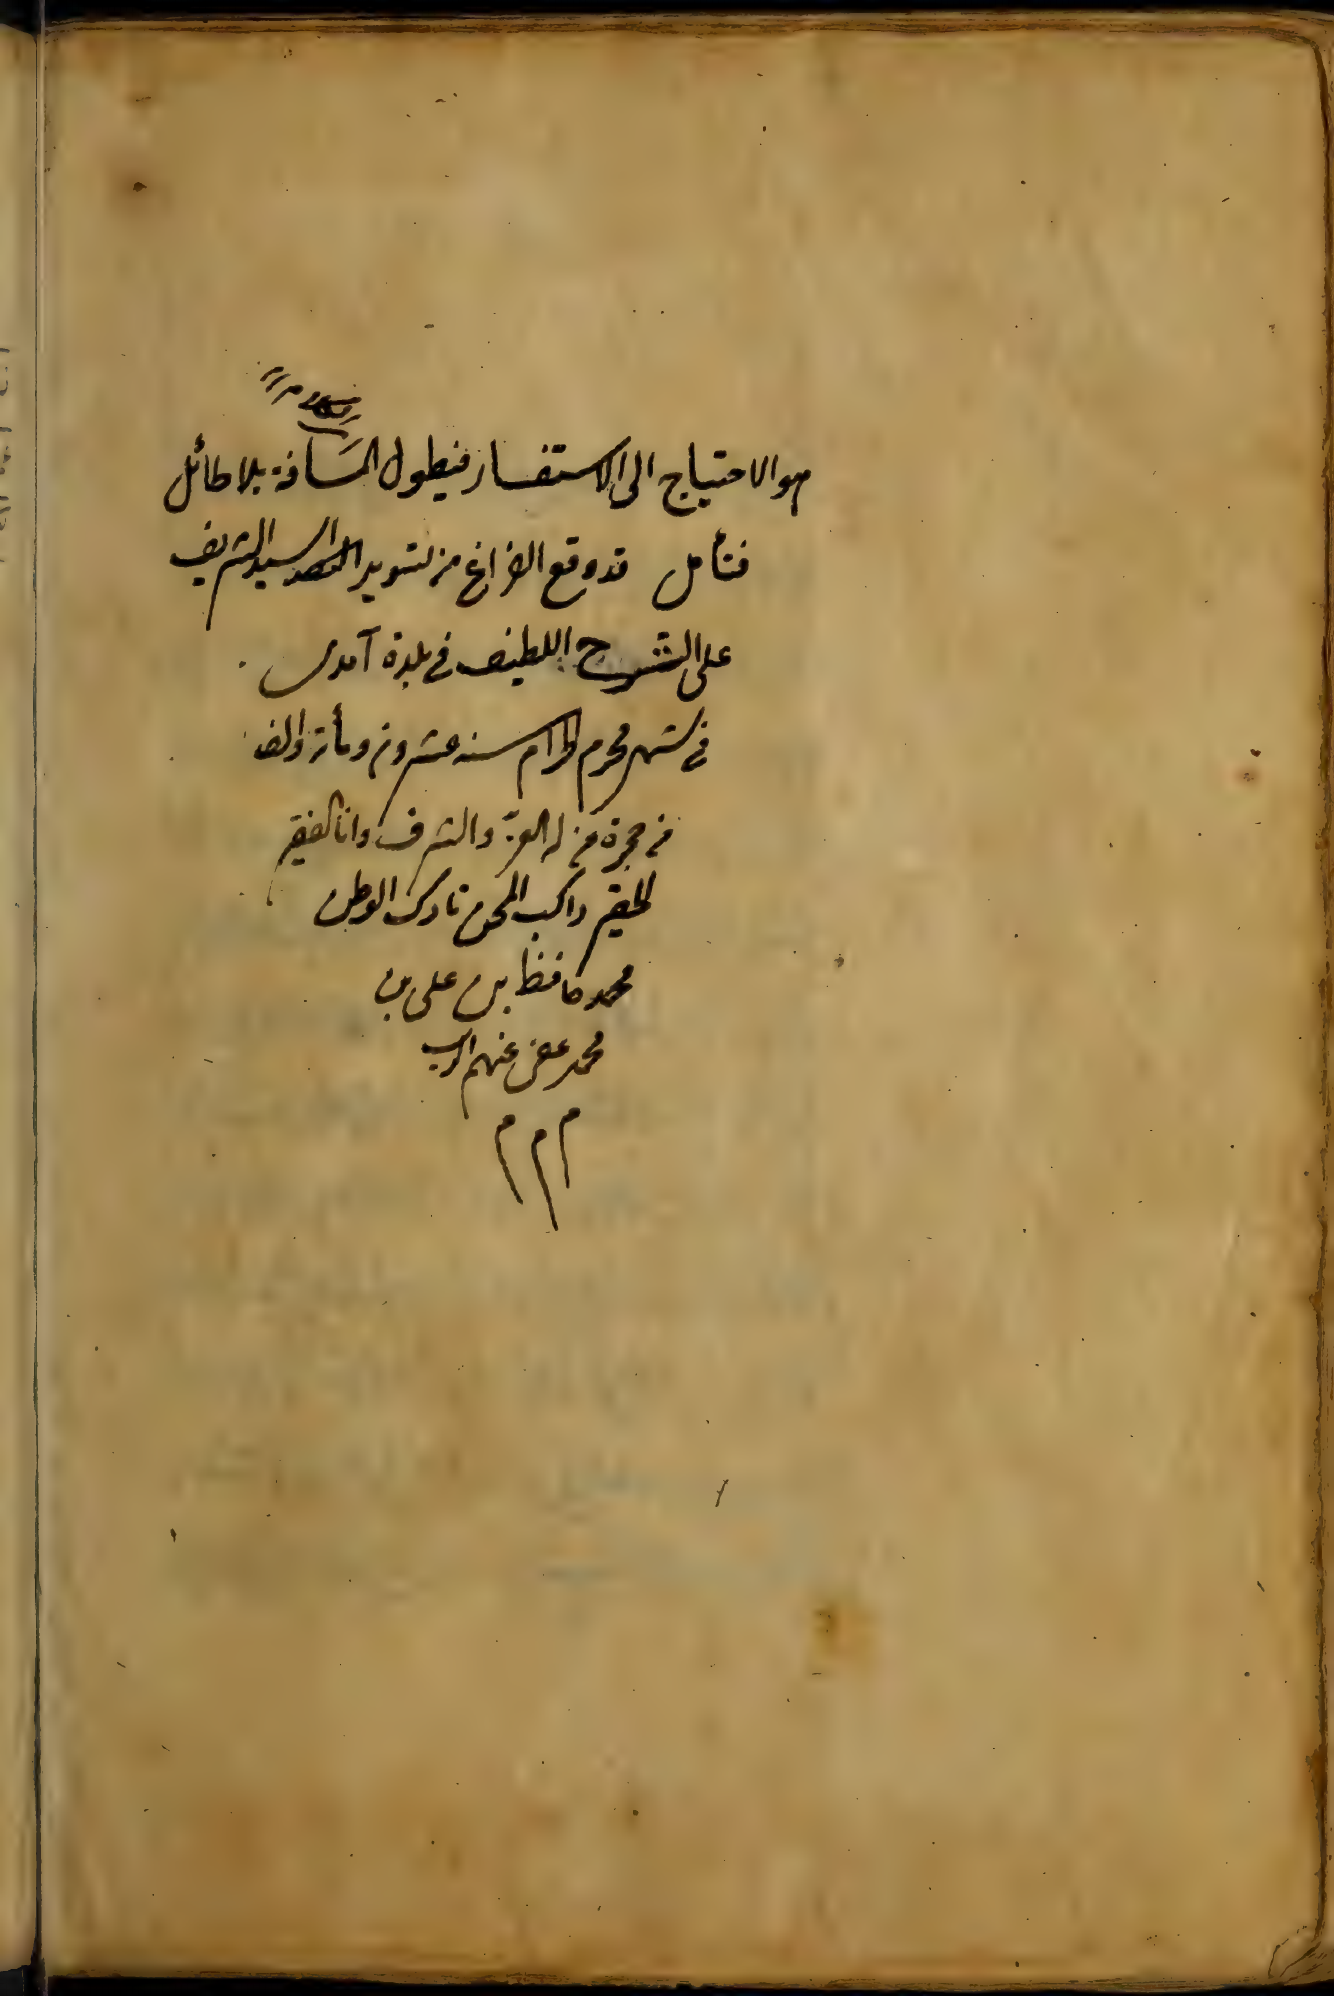 هو الاحتياج الى الاستفسار فيطول المسافة بلا طائل
فتأمل قد وقع الفراغ من تسويد السيد الشريف
على الشرح اللطيف في بلدة آمدى
في شهر محرم الحرام سنه عشرون ومأة والف
من حجرة من له العزّ والشرف وانا الفقير
الحقير راكب المحن تارك الوطن
محمد حافظ بن على بن
محمد عفى عنهم الرب
م م م